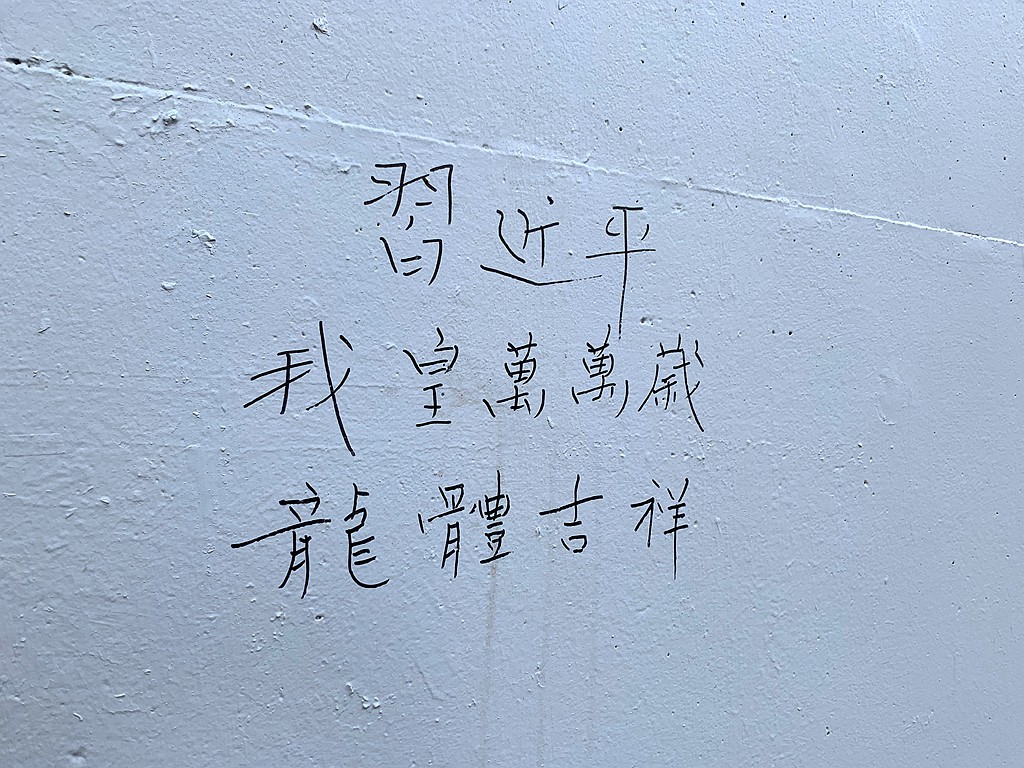 習近平
我皇萬萬歲
龍體吉祥